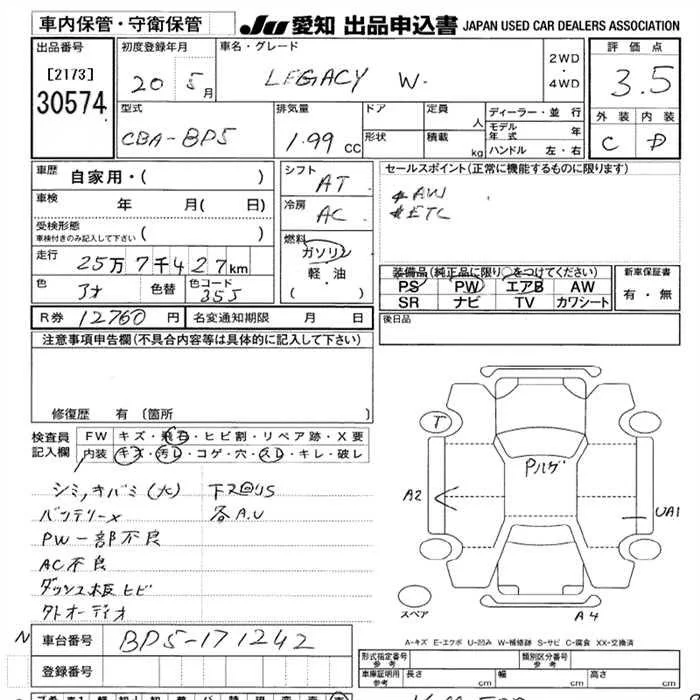 車内保管・守衛保管 JU 愛知 出品申込書 JAPAN USED CAR DEALERS ASSOCIATION
出品番号 初度登録年月 車名・グレード 2WD・4WD 評価点
[2173] 20 5月 LEGACY W. 3.5
30574
型式 排気量 ドア 定員 人 ディーラー・並行 外装 内装
CBA-BP5 1.99 CC 形状 積載 kg モデル年式 年 C D
ハンドル 左・右
車歴 自家用・( ) シフト AT セールスポイント(正常に機能するものに限ります)
車検 年 月( 日) 冷房 AC AW
受検形態 ETC
車検付きのみ記入して下さい ( ) 燃料
走行 25万7千427km ガソリン 装備品(純正品に限り○をつけてください) 新車保証書
色 アオ 色替 色コード 35J 軽・油 PS PW エアB AW 有・無
・( ) SR ナビ TV カワシート
R券 12760円 名変通知期限 月 日 後日品
注意事項申告欄(不具合内容等は具体的に記入して下さい)
修復歴 有 〔箇所
検査員 FW キズ・飛石・ヒビ割・リペア跡・X要
記入欄 内装 キズ・汚レ・コゲ・穴・スレ・キレ・破レ
シミ,キバミ(大)
各A.U
バッテリーX
PW一部不良
AC不良
ダッシュ板ヒビ
タトオーディオ
T
Pルゲ
A2
UA1
スペア
A4
A-キズ E-エクボ U-凹み W-補修跡 S-サビ C-腐食 XX-交換済
N 車台番号 BP5-171242
登録番号
形式指定番号 参考 類別区分番号 参考
車庫証明用 参考 長さ cm 幅 cm 高さ cm